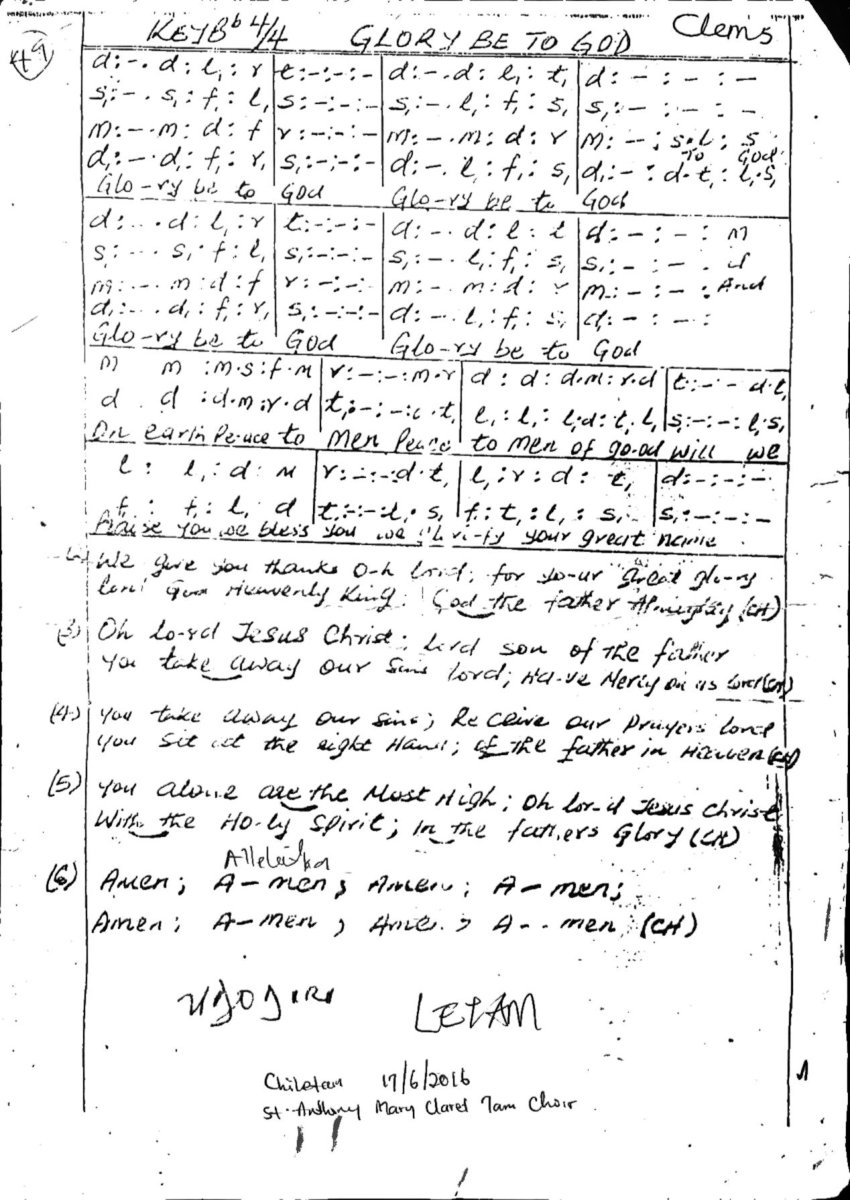 49
KEY Bb 4/4 GLORY BE TO GOD Clems
d:-.d:l,:r | t:-:-:- | d:-.d:l,:t, | d:-:-:-
s,:-.s,:f,:l, | s:-:-:- | s,:-.l,:f,:s, | s,:-:-:-
m:-.m:d:f | r:-:-:- | m:-.m:d:r | m:-:s.l:s
To God
d,:-.d,:f,:r, | s,:-:-:- | d:-.l,:f,:s, | d,:-:d.t,:l,.s,
Glo-ry be to God Glo-ry be to God
d:-.d:l,:r | t:-:-:- | d:-.d:l:t | d:-:-:m
s:-.s,:f:l, | s,:-:-:- | s,:-.l,:f,:s, | s,:-:-.d
m:-.m:d:f | r:-:-:- | m:-.m:d:r | m:-:-:And
d,:-.d,:f,:r, | s,:-:-:- | d:-.l,:f,:s, | d,:-:-:
Glo-ry be to God Glo-ry be to God
m m:m.s:f.m | r:-:-:m.r | d:d:d.m:r.d | t:-:-d.t,
d d:d.m:r.d | t,:-:-:d.t, | l,:l,:l,.d:t,.l, | s,:-:-:l,.s,
On earth Peace to Men Peace to men of good will we
l: l,:d:m | r:-:-:d.t, | l,:r:d:t, | d:-:-:-
f: f,:l, d | t:-:-:l,.s, | f:t,:l,:s, | s,:-:-:-
Praise you we bless you we your great name
We give you thanks O-h lord; for yo-ur great glo-ry
Heavenly King; God the father Almighty (CH)
(3) Oh lo-rd Jesus Christ; lord son of the father
You take away our sins lord; Ha-ve Mercy on us lord (CH)
(4) You take away our sins; Receive our Prayers lord
You sit at the right Hand; of the father in Heaven (CH)
(5) You alone are the Most High; Oh lor-d Jesus Christ
With the Ho-ly Spirit; in the fathers Glory (CH)
Alleluia
(6) Amen; A-men; Amen; A-men;
Amen; A-men; Amen; A--men (CH)
LETAM
Chiletam 17/6/2016
St. Anthony Mary Claret 7am Choir